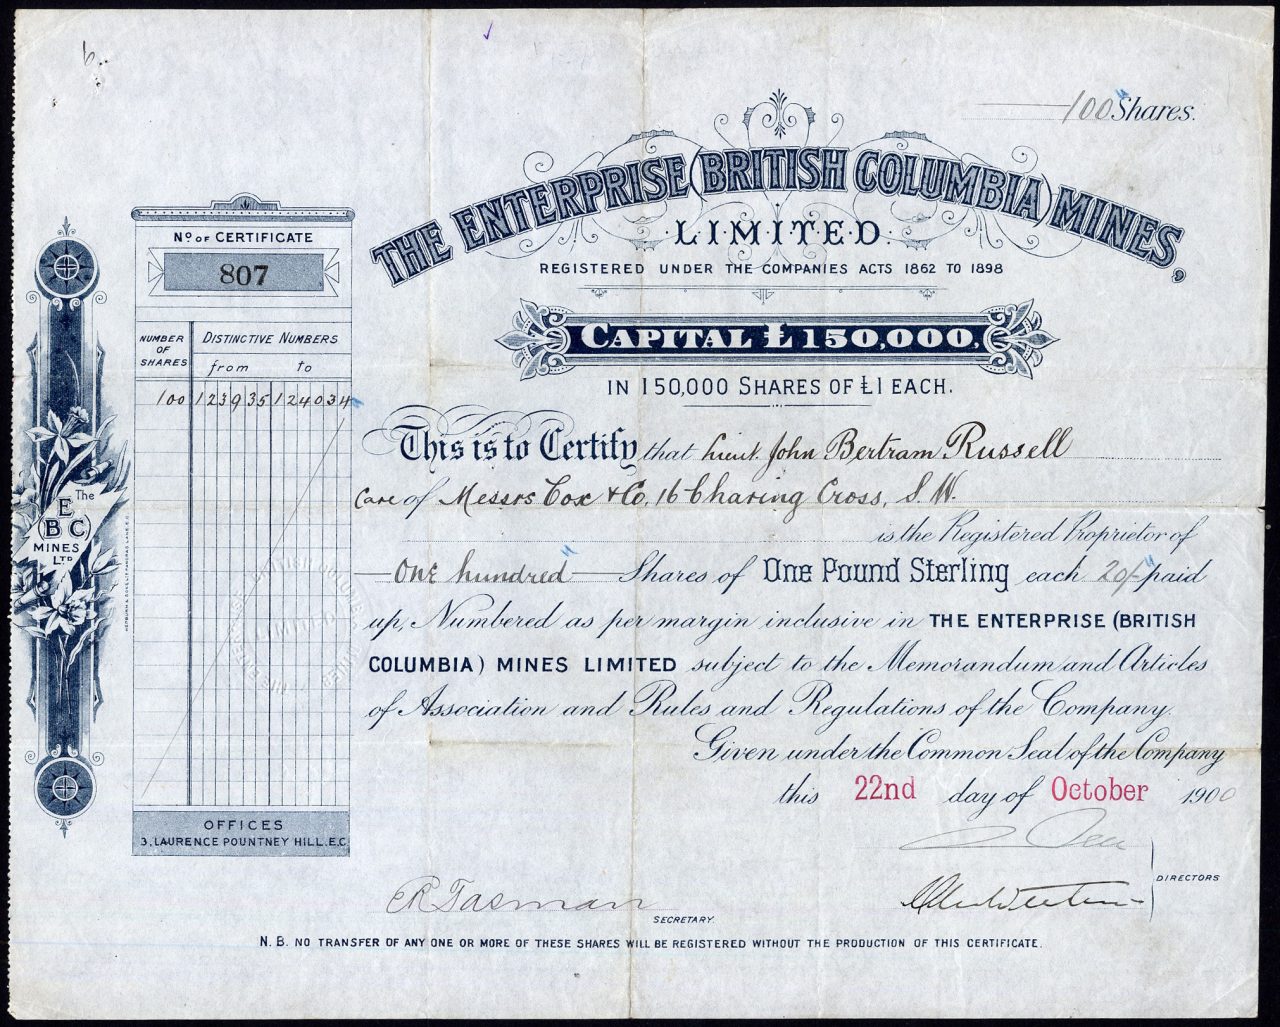 100 Shares.
THE ENTERPRISE (BRITISH COLUMBIA) MINES,
LIMITED.
REGISTERED UNDER THE COMPANIES ACTS 1862 TO 1898
CAPITAL £150,000,
IN 150,000 SHARES OF £1 EACH.
No. OF CERTIFICATE
807
NUMBER OF SHARES
DISTINCTIVE NUMBERS
from to
100 123935 124034
The E (B C) MINES LTD
This is to Certify that Lieut. John Bertram Russell
Care of Messrs Cox & Co, 16 Charing Cross, S.W.
is the Registered Proprietor of
One hundred Shares of One Pound Sterling each 20/- paid
up, Numbered as per margin inclusive in THE ENTERPRISE (BRITISH
COLUMBIA) MINES LIMITED subject to the Memorandum and Articles
of Association and Rules and Regulations of the Company.
Given under the Common Seal of the Company
this 22nd day of October 1900
OFFICES
3, LAURENCE POUNTNEY HILL. E.C.
DIRECTORS
Tasman
SECRETARY.
N.B. NO TRANSFER OF ANY ONE OR MORE OF THESE SHARES WILL BE REGISTERED WITHOUT THE PRODUCTION OF THIS CERTIFICATE.